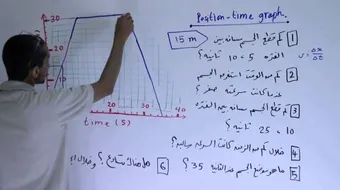 Position-time graph.
30
20
10
20
30
40
time (s)
15 m
1 كم قطع الجسم مسافة بين
الفترة 5 ، 10 ثانية ؟
v = Δx/Δt
2 كم من الوقت استغرق الجسم
كانت سرعته صفر ؟
3 كم قطع الجسم مسافة بين الفترة
10 ، 25 ثانية ؟
4 خلال كم من الزمن كانت السرعة سالبة ؟
5 ما هو موقع الجسم عند الثانية 35 ؟
6 هل هناك تسارع ؟